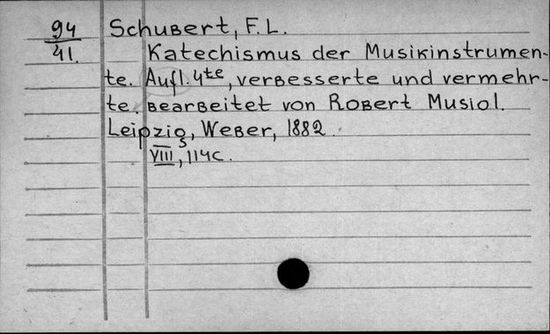 94 Schubert, F.L.
41. Katechismus der Musikinstrumen-
te. Aufl. 4te, verbesserte und vermehr-
te, bearbeitet von Robert Musiol.
Leipzig, Weber, 1882.
VIII, 114 c.